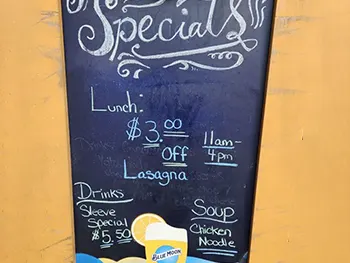 Specials
Lunch:
$3.00
Off
Lasagna
11am-
4pm
Drinks
Sleeve
Special
$5.50
BLUE MOON
Soup
Chicken
Noodle